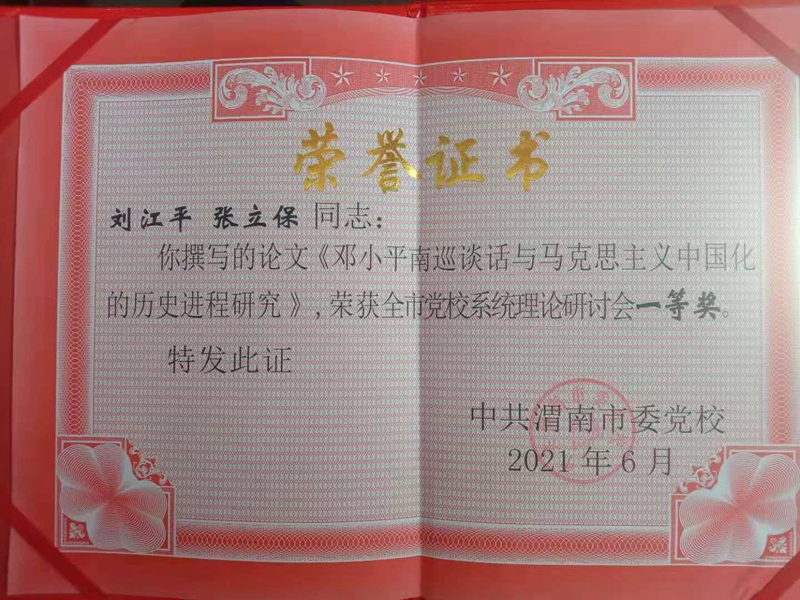 荣誉证书
刘江平 张立保 同志：
你撰写的论文《邓小平南巡谈话与马克思主义中国化
的历史进程研究》，荣获全市党校系统理论研讨会一等奖。
特发此证
中共渭南市委党校
2021年6月